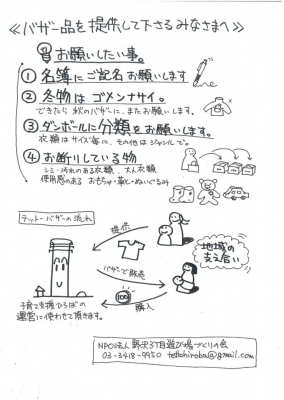 ≪バザー品を提供して下さるみなさまへ≫
お願いしたい事。
① 名簿にご記名お願いします
② 冬物はゴメンナサイ。
できたら秋のバザーに、またお願いします。
③ ダンボールに分類をお願いします。
衣類はサイズ毎に、その他はジャンルで。
④ お断りしている物
シミ・汚れのある衣類、大人衣類
使用感のある おもちゃ・靴・ぬいぐるみ
テットーバザーの流れ
提供
地域の
支え合い
バザーで販売
100
購入
子育て支援ひろばの
運営に使わせて頂きます。
NPO法人 野沢3丁目遊び場づくりの会
03-3418-9950 tettohiroba@gmail.com